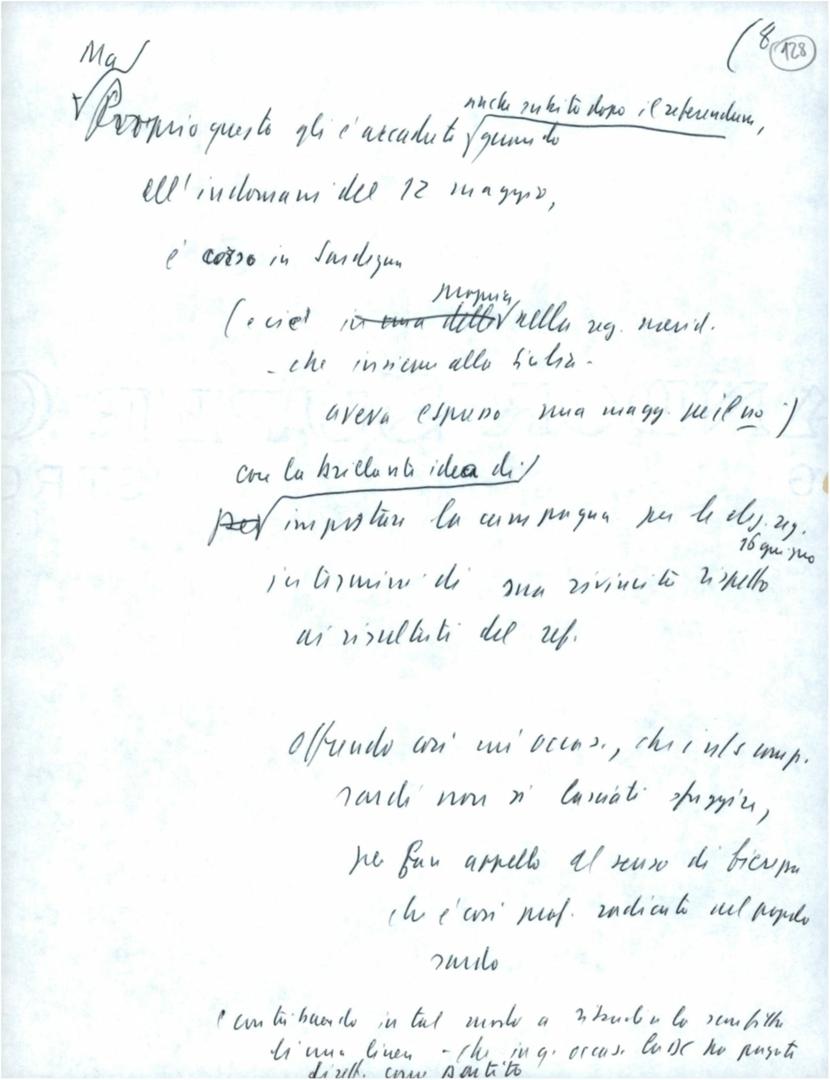 (8 128
Ma
Proprio questo gli è accaduto anche subito dopo il referendum, quando
all'indomani del 12 maggio,
è corso in Sardegna
(e cioè in una delle proprio nella reg. merid.
- che insieme alla Sicilia -
aveva espresso una magg. per il no -)
con la brillante idea di
per impostare la campagna per le elez. reg.
16 giugno
in termini di una rivincita rispetto
ai risultati del ref.
Offrendo così un'occas., che i comp.
sardi non si lasciati sfuggire,
per fare appello al senso di
che è così prof. radicato nel popolo
sardo
e contribuendo in tal modo a la sconfitta
di una linea - che in q. occas. la DC ha pagato
dirett. come partito